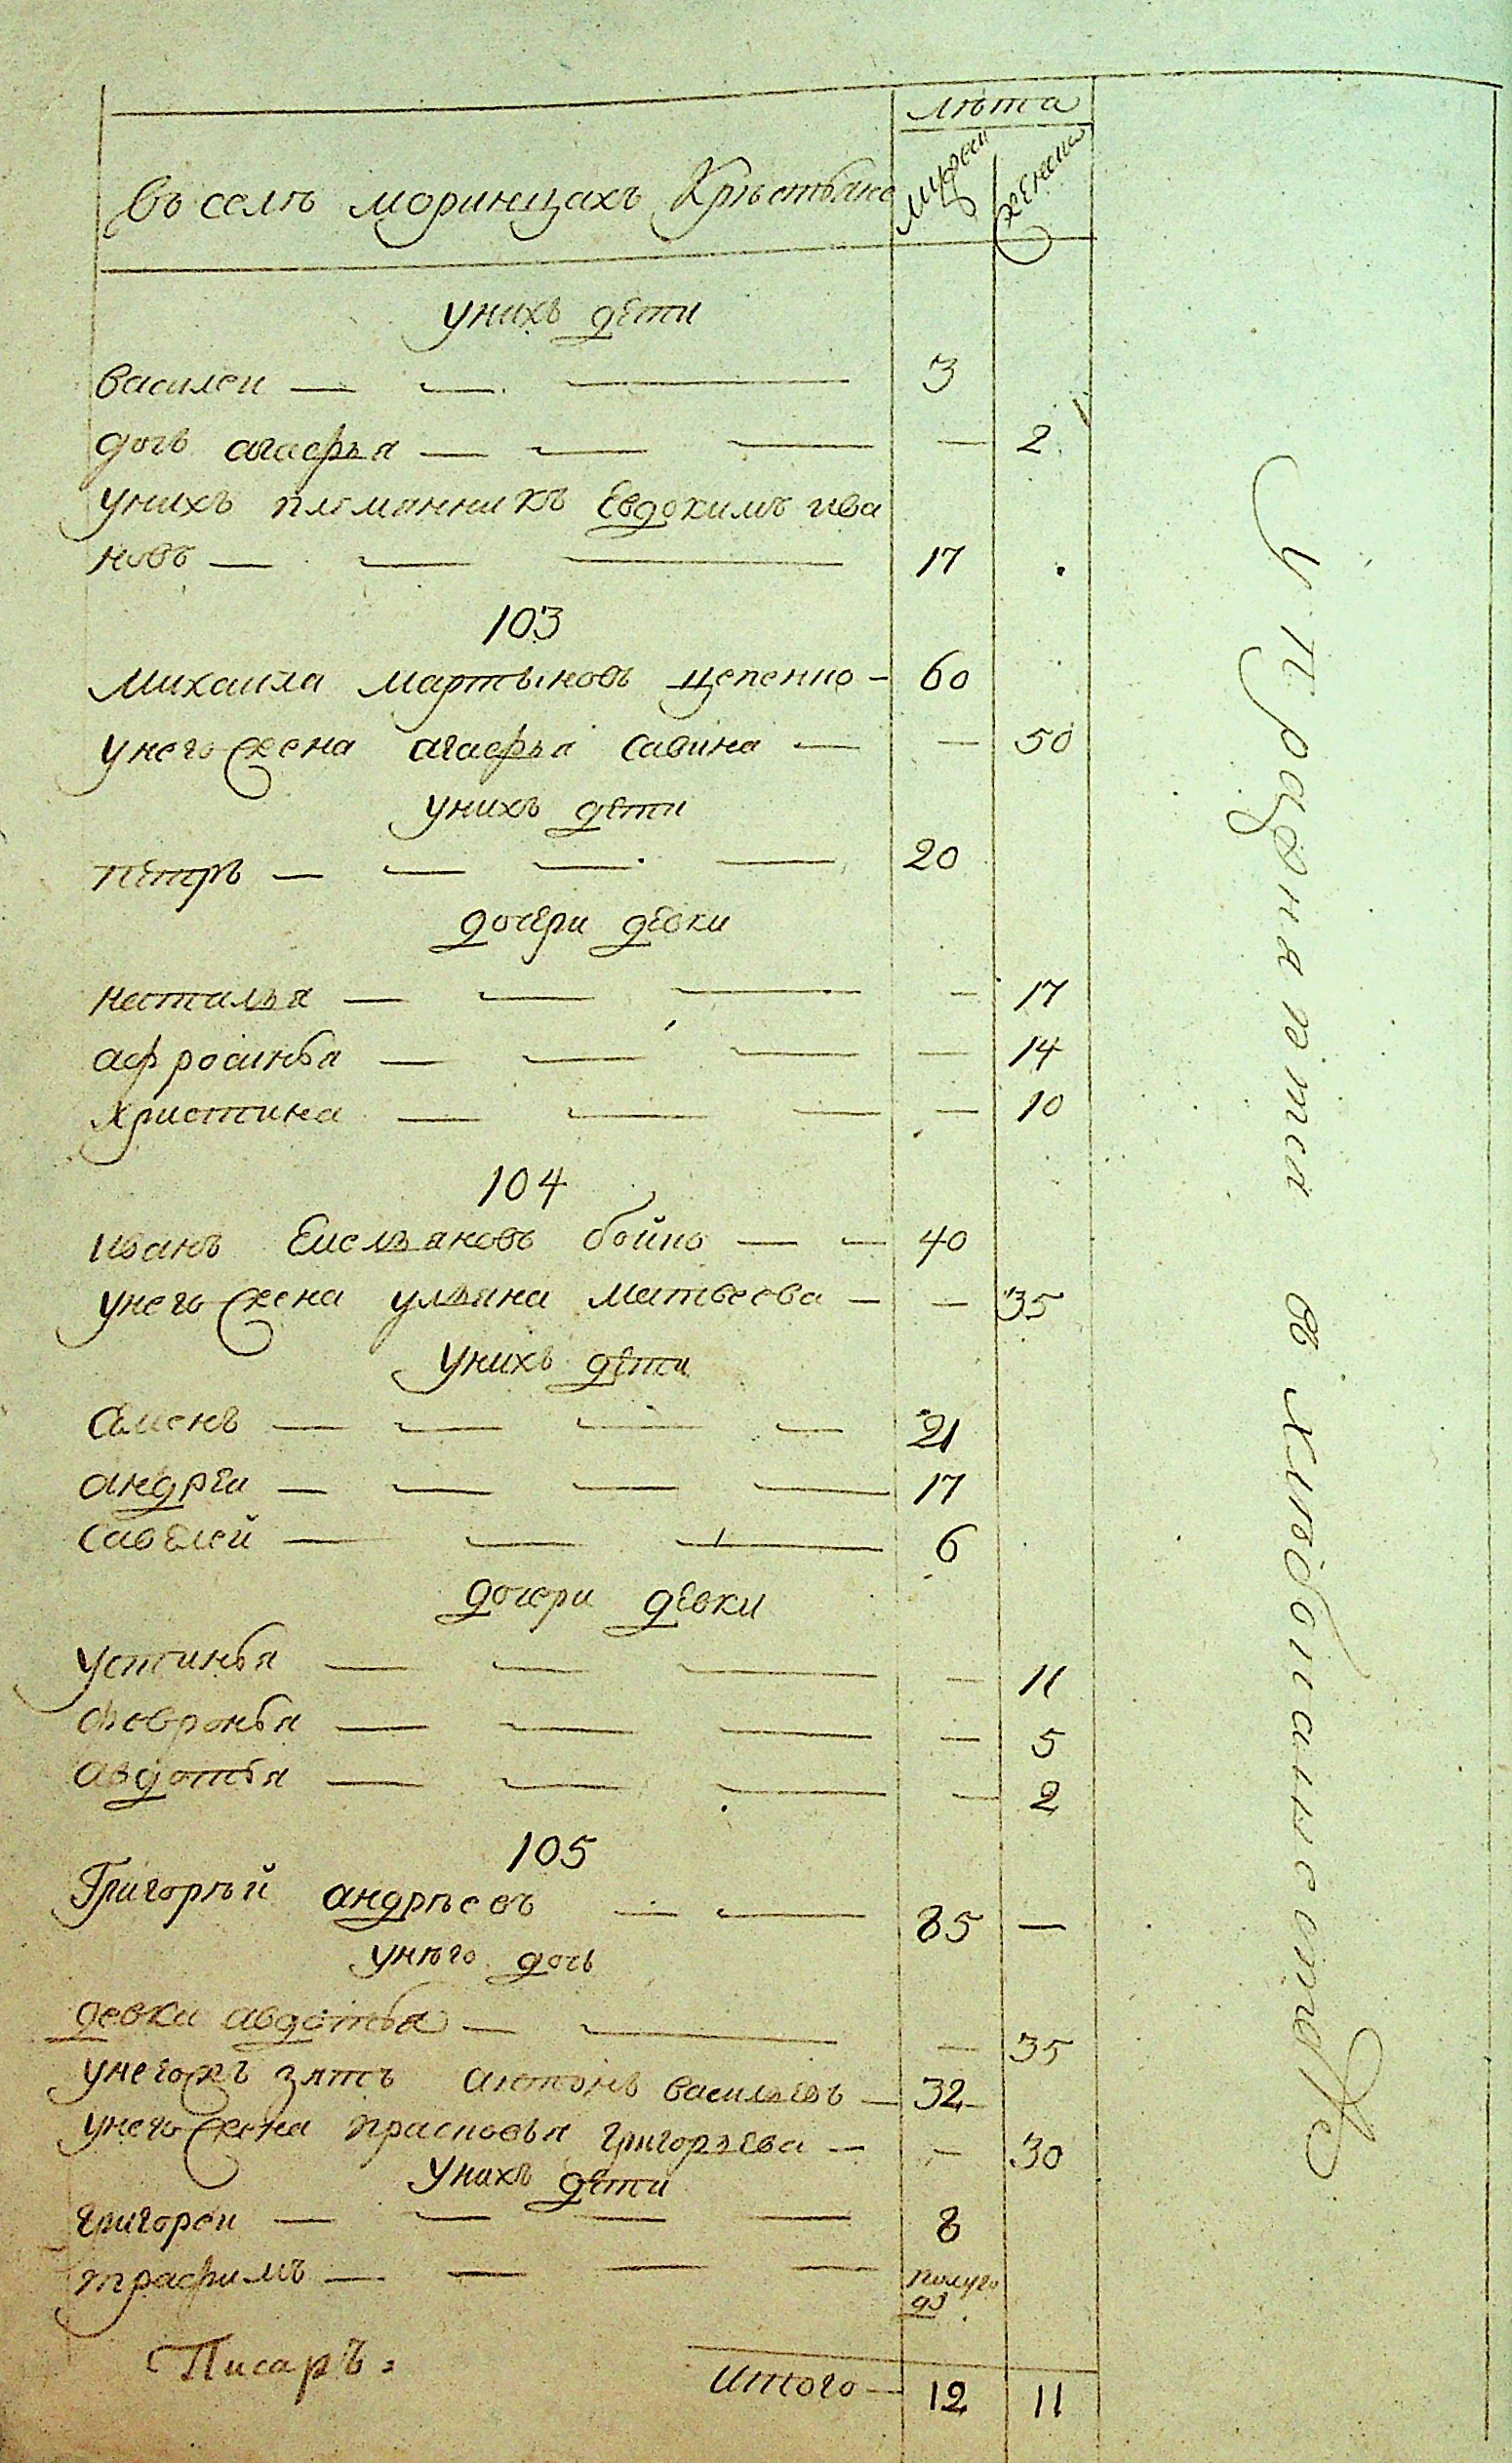 лѣта
въ селѣ моринцахъ Крѣстьяне
мужеи
женска
унихъ дети
василеи — — — 3
дочь агафья — — — — 2
унихъ племянникъ Евдокимъ ива
новъ — — — 17
103
Михаила мартыновъ цепенко — 60
унего жена агафья савина — — 50
унихъ дети
петръ — — — — 20
дочери девки
наталья — — — — 17
афросинья — — — — 14
христина — — — — 10
104
иванъ Емельяновъ бойко — — 40
унего жена ульяна матвеева — — 35
унихъ дети
семенъ — — — — 21
андреи — — — — 17
савелей — — — 6
дочери девки
устинья — — — — 11
февронья — — — — 5
авдотья — — — — 2
105
Григорѣй андрѣевъ — — 85 —
унѣго дочь
девка авдотья — — — 35
унегожъ зять антонъ васильевъ — 32
унего жена прасковья григорьева — — 30
унихъ дети
григореи — — — — 8
трафимъ — — — — полуго
да
Писаръ:
итого — 12 11
упражняется в хлебопашестве